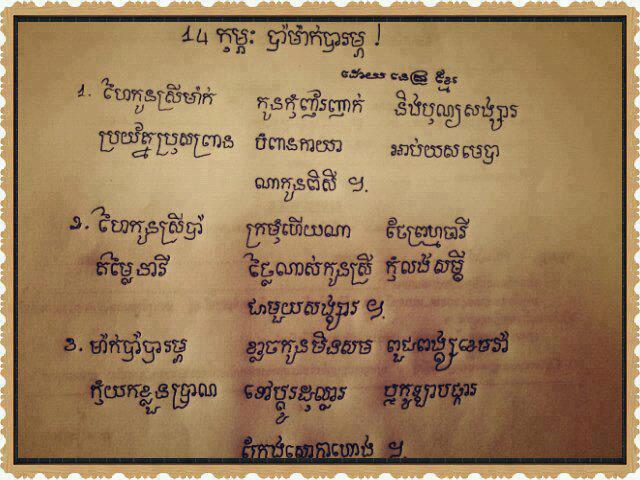 14 កុម្ភៈ ប៉ាម៉ាក់បារម្ភ !
ដោយ នេត្រ ខ្មែរ
1. ហៃកូនស្រីម៉ាក់ កូនកុំញ៉រញាក់ នឹងបុណ្យសង្សារ
ប្រយ័ត្នប្រុសព្រាន បំពានកាយា អាប់យសមេបា
ណាកូនពិសី ៗ.
2. ហៃកូនស្រីប៉ា ក្រមុំហើយណា ថែព្រហ្មចារី
តម្លៃនារី ថ្លៃណាស់កូនស្រី កុំលង់សម្ដី
ជាមួយសង្សារ ៗ.
3. ម៉ាក់ប៉ាបារម្ភ ខ្លាចកូនមិនសម ពូជពង្សខេមរា
កុំយកខ្លួនប្រាណ ទៅប្ដូរដុល្លារ ឬកូឡាបផ្ការ
ក្រែងសោកាហោង ៗ.